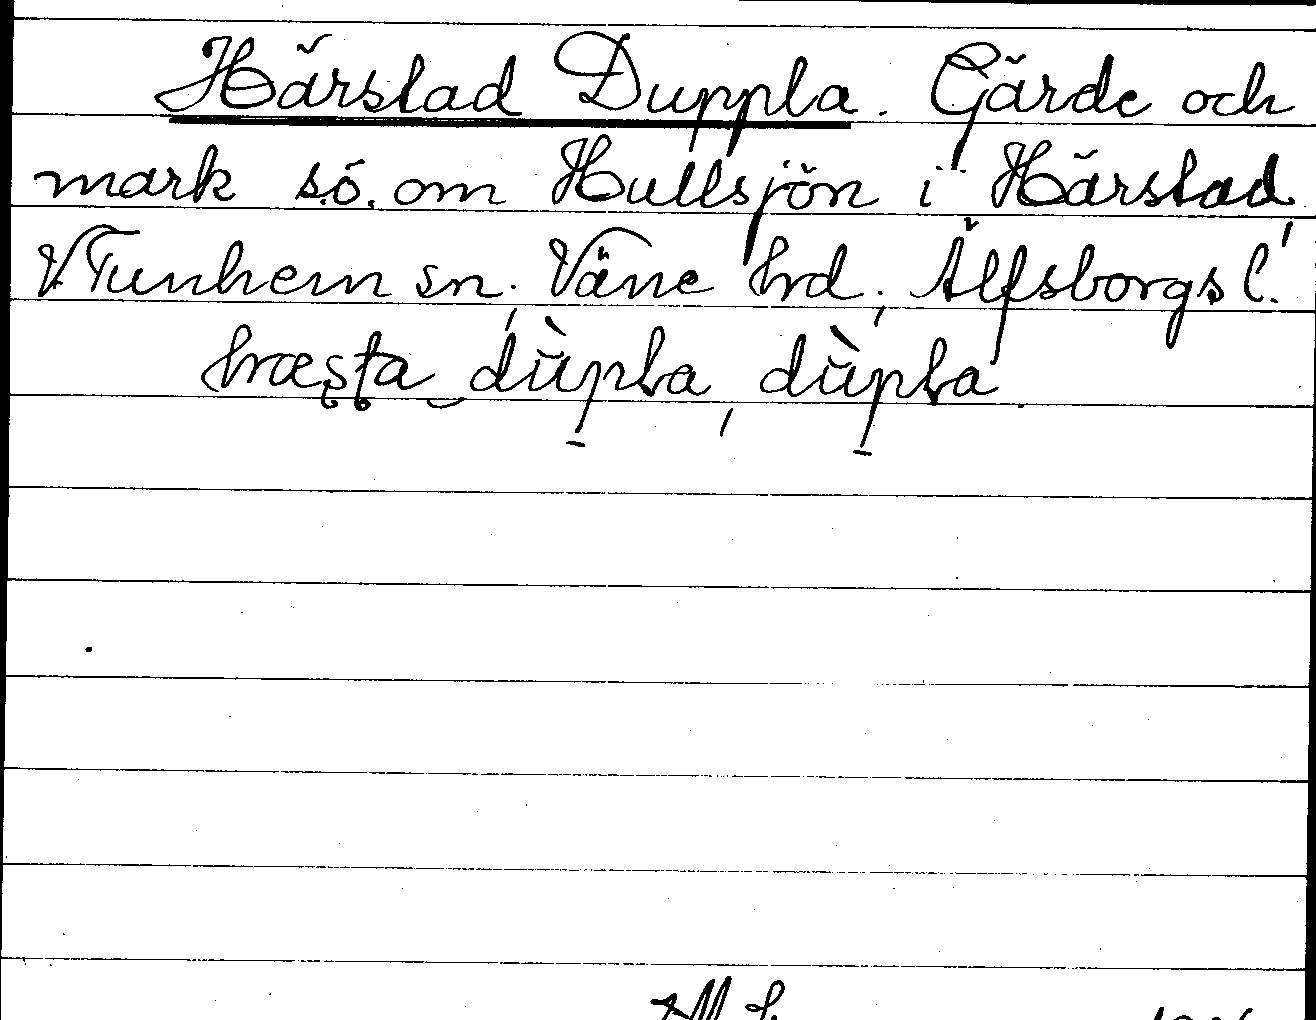 Härstad Duppla. Gärde och
mark s.ö. om Hullsjön i Härstad,
V.Tunhem sn, Väne hrd, Älfsborgs l.
dùpla, dùpla.